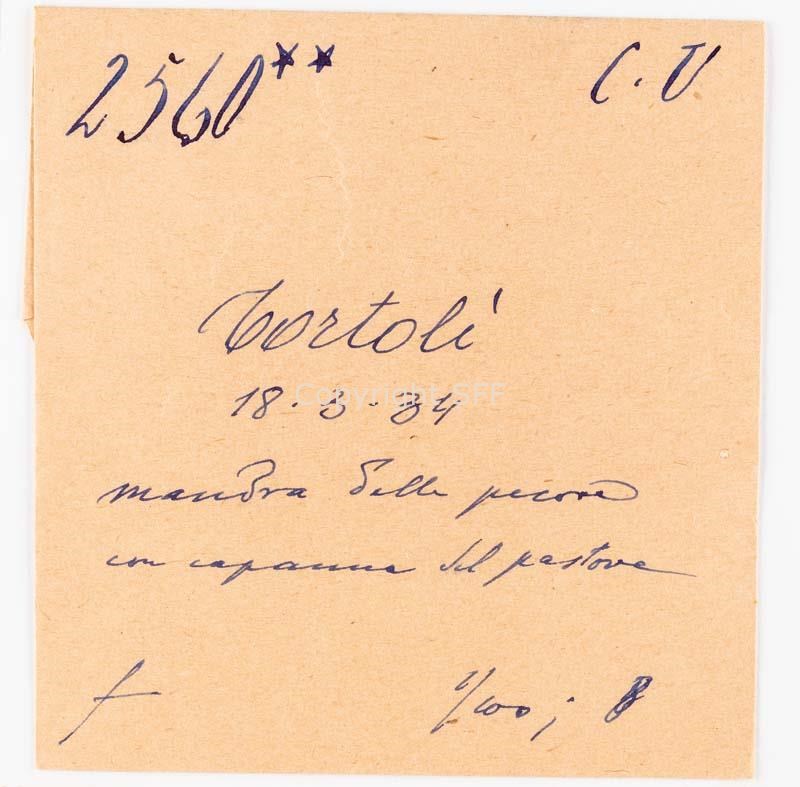 2560** C. U
Tortolì
18.3.34
Copyright SFF
mandra delle pecore
con capanna del pastore
f 1/100; 8